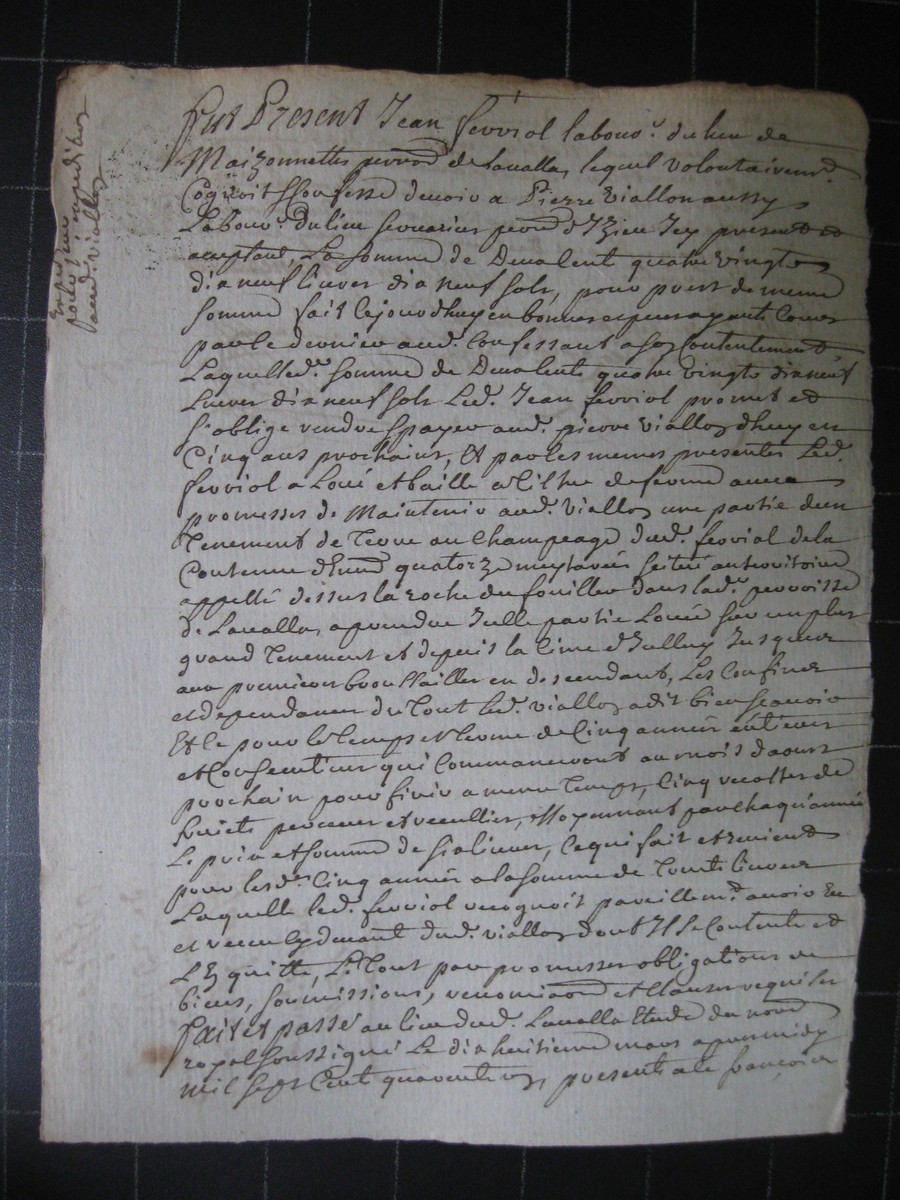 Fut Present Jean ferriol labour. du lieu de
Maizonnettes parroisse de Lavalla, lequel volontairemt.
Cognoit & confesse devoir a Pierre viallon aussy
Labour. du lieu parr d'Izieu Icy present et
acceptant, La somme de Deux cent quatre vingts
dix neuf livres dix neuf sols, pour prest de meme
somme fait lejourdhuy en bonnes especes ayants Cours
par le dernier aud. Confessant a son Contentement
Laquelle d. somme de Deux cent quatre vingts dix neuf
Livres dix neuf sols Led. Jean ferriol promet et
s'oblige rendre & payer aud. pierre viallon d'huy en
Cinq ans prochains, Et par les memes presentes Led.
ferriol a Loué et baillé a titre de ferme avec
promesses de Maintenir aud. viallon une partie d'un
Tenement de Terre au Champeage dud. ferriol de la
Contenue d'Env. quatorze meytarées scitué au territoire
appellé dessus la roche du fouillou dans lad. parroisse
de Lavalla, a prendre Icelle partie Louée sur un plus
grand Tenement et depuis la Cime d'Icelluy Jusques
aux premieres broussailles en descendant, Les Confines
et dependances du Tout led. viallon a dit bien scavoir
Et ce pour le temps et terme de Cinq années entieres
et Consecutives qui Commanceront au mois d'aoust
prochain pour finir a meme Temps, Cinq recoltes de
fruicts perceues et recueillies, & Moyennant par chaqu'année
Le prix et somme de six livres, Ce qui fait et revient
pour lesd. Cinq années a la somme de Trente livres
Laquelle led. ferriol recognoit pareillemt. avoir Eu
et receu cydevant dud. viallon dont Il se Contente et
L'En quitte, Le Tout par promesses obligations de
biens, soumissions, renonciaons et Clauses requises
fait et passé au lieu dud. Lavalla Etude du nore
royal soussigné Le dix huitieme mars apres midy
mil sept Cent quarente, presents a ce françois
Expedié
pour
aud. viallon